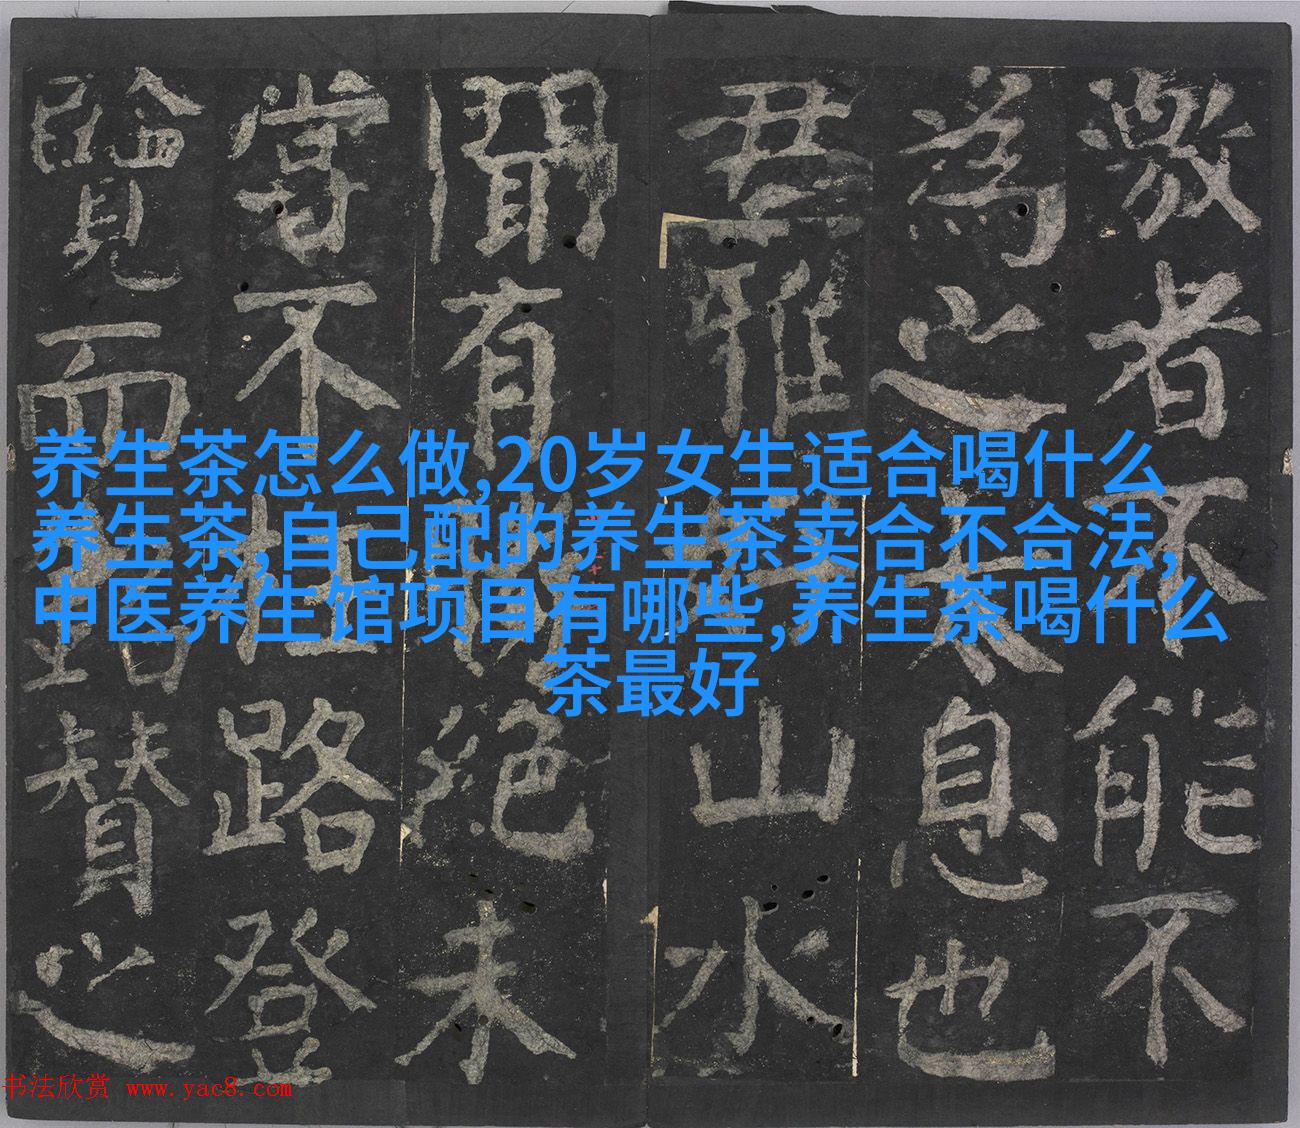 激者不能不
為之太息也
君雅山水
聞有絕未
嘗不枉路登
覽而賛之
养生茶怎么做,20岁女生适合喝什么
养生茶,自己配的养生茶卖合不合法,
中医养生馆项目有哪些,养生茶喝什么
茶最好
书法欣赏 www.yac8.com